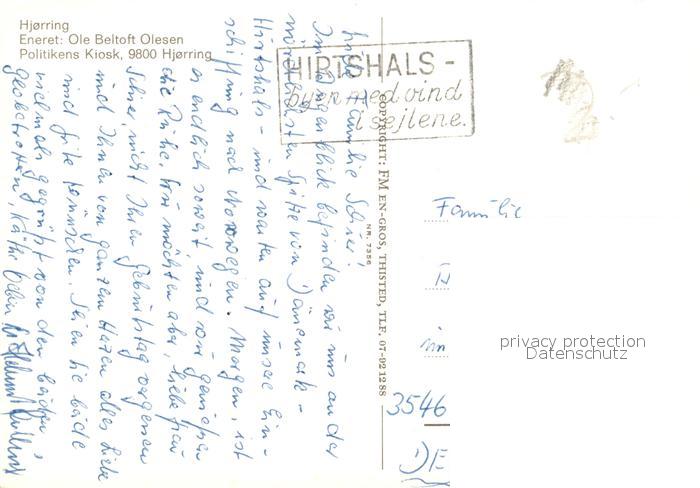 Hjørring
Eneret: Ole Beltoft Olesen
Politikens Kiosk, 9800 Hjørring
HIRTSHALS -
byen med vind
i sejlene.
COPYRIGHT: FM EN-GROS, THISTED, TLF. 07-92 12 88
NR. 7356
Liebe Familie
Im Augenblick befinden wir uns an der
nördlichsten Spitze von Dänemark -
Hirtshals - und warten auf unsere Ein-
schiffung nach Norwegen. Morgen ist
es endlich soweit und wir genießen
die Ruhe. Wir möchten aber, liebe Frau
nicht Ihren Geburtstag vergessen
und Ihnen von ganzem Herzen alles Liebe
und Gute wünschen. Seien Sie beide
vielmals gegrüßt von den beiden
Familie
in
3546
DE
privacy protection
Datenschutz